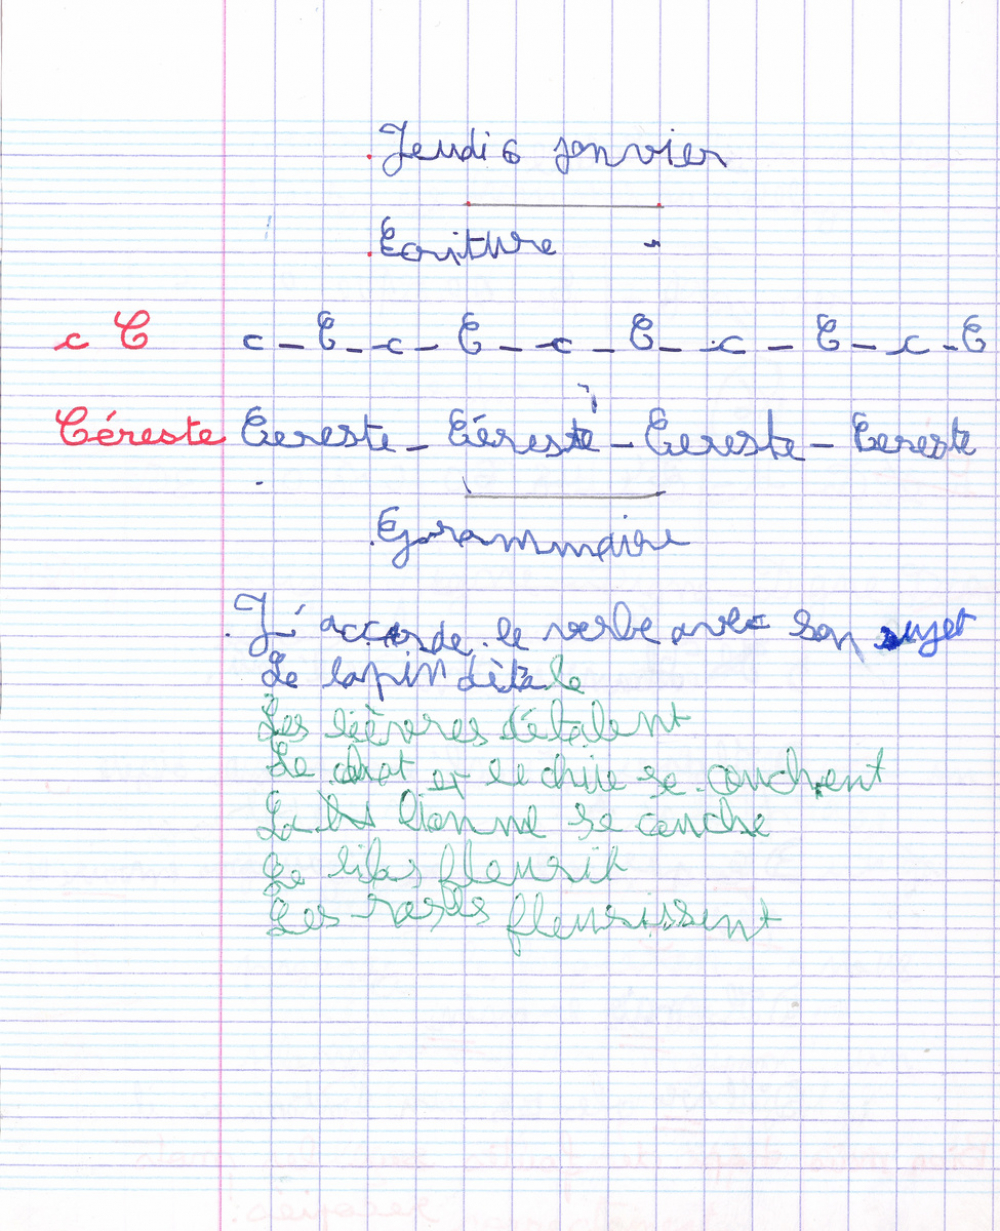 Jeudi 6 janvier
Ecriture
c C c - C - c - C - c - C - c - C - c - C
Céreste Cereste - Céreste - Cereste - Cereste
Grammaire
J'accorde le verbe avec son sujet
Le lapin détale
Les lièvres détalent
Le chat et le chie se couchent
La lionne se couche
Le lilas fleurit
Les roses fleurissent